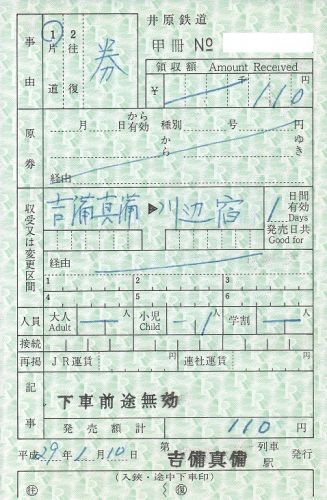 井原鉄道
甲冊 No
事由
1 片道
2 往復
券
領収額 Amount Received
¥ 千 110
原券
月 日 から有効 種別 号 円
から ゆき
経由
収受又は変更区間
吉備真備 ▶ 川辺宿
1 日間有効 Days
発売日共 Good for
経由
1 2 3
4 5 6
人員 大人 Adult 人 小児 Child 1 人 学割 人
接続
再掲 JR運賃 円 連社運賃 円
記事
下車前途無効
発売額計 110 円
平成 29 年 1 月 10 日 第 列車
吉備真備 駅 発行
(入鋏・途中下車印)
社 復